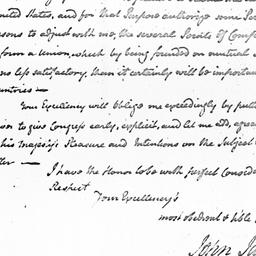 nited States, and for that Purpose authorize some Per
sons to adjust with me, the several Points of Comp
form a Union, which by being founded on mutual
no less satisfactory, than it certainly will be importan
untries —
Your Excellency will oblige me exceedingly by putt
to give Congress early, explicit, and let me add, agre
his majesty's Pleasure and Intentions on the Subject
ter —
I have the Honor to be with perfect Consid
Respect
Your Excellency's
most obedient & hble
John Ja